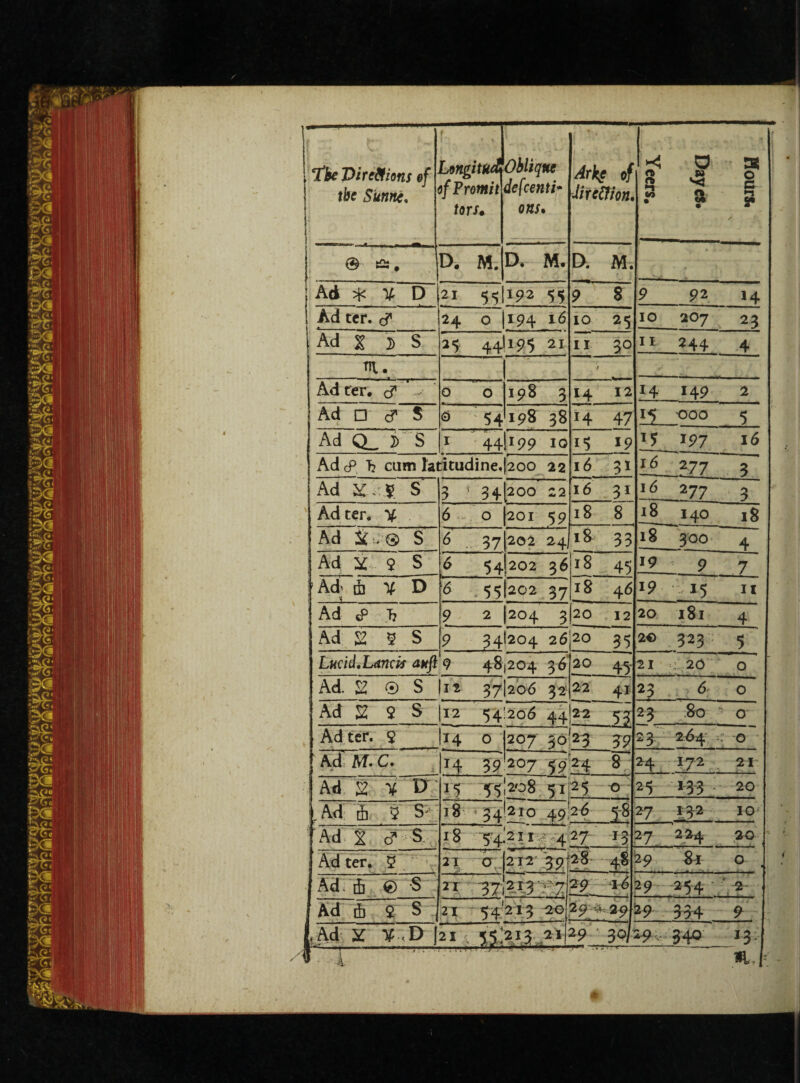 The Directions of the Sunne. | Longitud of Promittors. | Oblique descentions. | Arke of direction. | Yeers. Dayes. Hours.
☉ ♎. | D. M. | D. M. | D. M.
Ad ⚹ ♃ D | 21 55 | 192 55 | 9 8 | 9 92 14
Ad ter. ♂ | 24 0 | 194 16 | 10 25 | 10 207 23
Ad ☽ S | 25 44 | 195 21 | 11 30 | 11 244 4
♏.
Ad ter. ♂ | 0 0 | 198 3 | 14 12 | 14 149 2
Ad □ ♂ S | 0 54 | 198 38 | 14 47 | 15 000 5
Ad Q ☽ S | 1 44 | 199 10 | 15 19 | 15 197 16
Ad ☍ ♄ cum latitudine. | 200 22 | 16 31 | 16 277 3
Ad ⚺ ☿ S | 3 34 | 200 22 | 16 31 | 16 277 3
Ad ter. ♃ | 6 0 | 201 59 | 18 8 | 18 140 18
Ad ⚺ ☉ S | 6 37 | 202 24 | 18 33 | 18 300 4
Ad ⚺ ♀ S | 6 54 | 202 36 | 18 45 | 19 9 7
Ad ♃ D | 6 55 | 202 37 | 18 46 | 19 15 11
Ad ☍ ♄ | 9 2 | 204 3 | 20 12 | 20 181 4
Ad ☿ S | 9 34 | 204 26 | 20 35 | 20 323 5
Lucid. Lancis aust | 9 48 | 204 36 | 20 45 | 21 20 0
Ad. ☉ S | 12 37 | 206 32 | 22 41 | 23 6 0
Ad ♀ S | 12 54 | 206 44 | 22 53 | 23 80 0
Ad ter. ♀ | 14 0 | 207 30 | 23 39 | 23 264 0
Ad M.C. | 14 39 | 207 59 | 24 8 | 24 172 21
Ad ♃ D | 15 55 | 208 51 | 25 0 | 25 133 20
Ad ☿ S | 18 34 | 210 49 | 26 58 | 27 132 10
Ad ♂ S. | 18 54 | 211 4 | 27 13 | 27 224 20
Ad ter. ☿ | 21 0 | 212 39 | 28 48 | 29 81 0
Ad. ☉ S | 21 37 | 213 7 | 29 16 | 29 254 2
Ad ♀ S | 21 54 | 213 20 | 29 29 | 29 334 9
Ad ⚺ ♃ D | 21 55 | 213 21 | 29 30 | 29 340 13
♏.